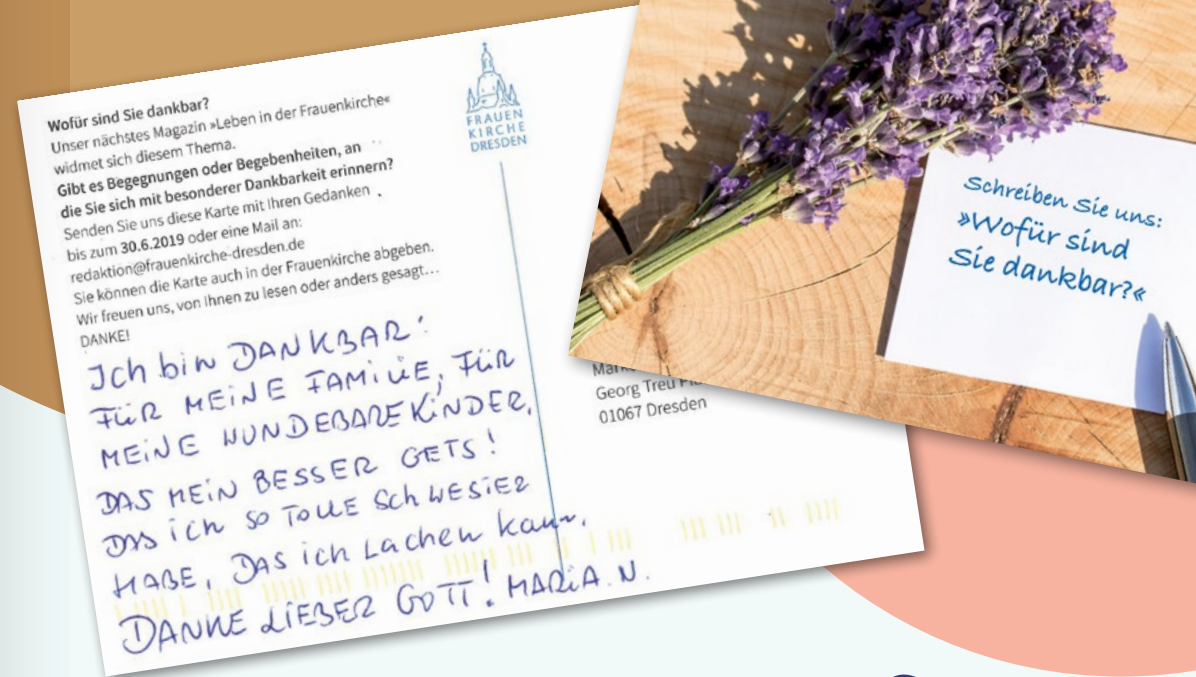 Wofür sind Sie dankbar?
Unser nächstes Magazin »Leben in der Frauenkirche«
widmet sich diesem Thema.
Gibt es Begegnungen oder Begebenheiten, an
die Sie sich mit besonderer Dankbarkeit erinnern?
Senden Sie uns diese Karte mit Ihren Gedanken
bis zum 30.6.2019 oder eine Mail an:
redaktion@frauenkirche-dresden.de
Sie können die Karte auch in der Frauenkirche abgeben.
Wir freuen uns, von Ihnen zu lesen oder anders gesagt…
DANKE!
Ich bin DANKBAR:
FÜR MEINE FAMILIE, FÜR
MEINE WUNDEBARE KINDER,
DAS MEIN BESSER GETS!
DAS ich SO TOLLE SCHWESTER
HABE, DAS ich LACHEN kann,
DANKE LIEBER GOTT! MARIA. N.
FRAUEN
KIRCHE
DRESDEN
Georg Treu
01067 Dresden
Schreiben Sie uns:
»Wofür sind
Sie dankbar?«